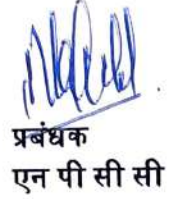 प्रबंधक
एन पी सी सी